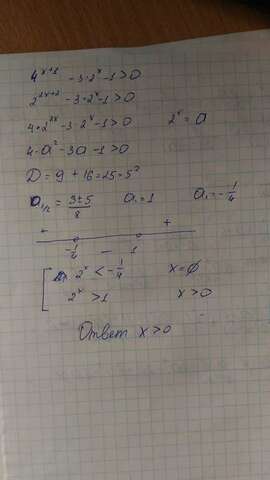 4^{x+1} - 3·2^x - 1 > 0
2^{2x+2} - 3·2^x - 1 > 0
4·2^{2x} - 3·2^x - 1 > 0 2^x = a
4·a² - 3a - 1 > 0
D = 9 + 16 = 25 = 5²
a_{1/2} = (3±5)/8 a₁ = 1 a₁ = -1/4
+ - +
-1/4 1
2^x < -1/4 x = ∅
2^x > 1 x > 0
Ответ x > 0